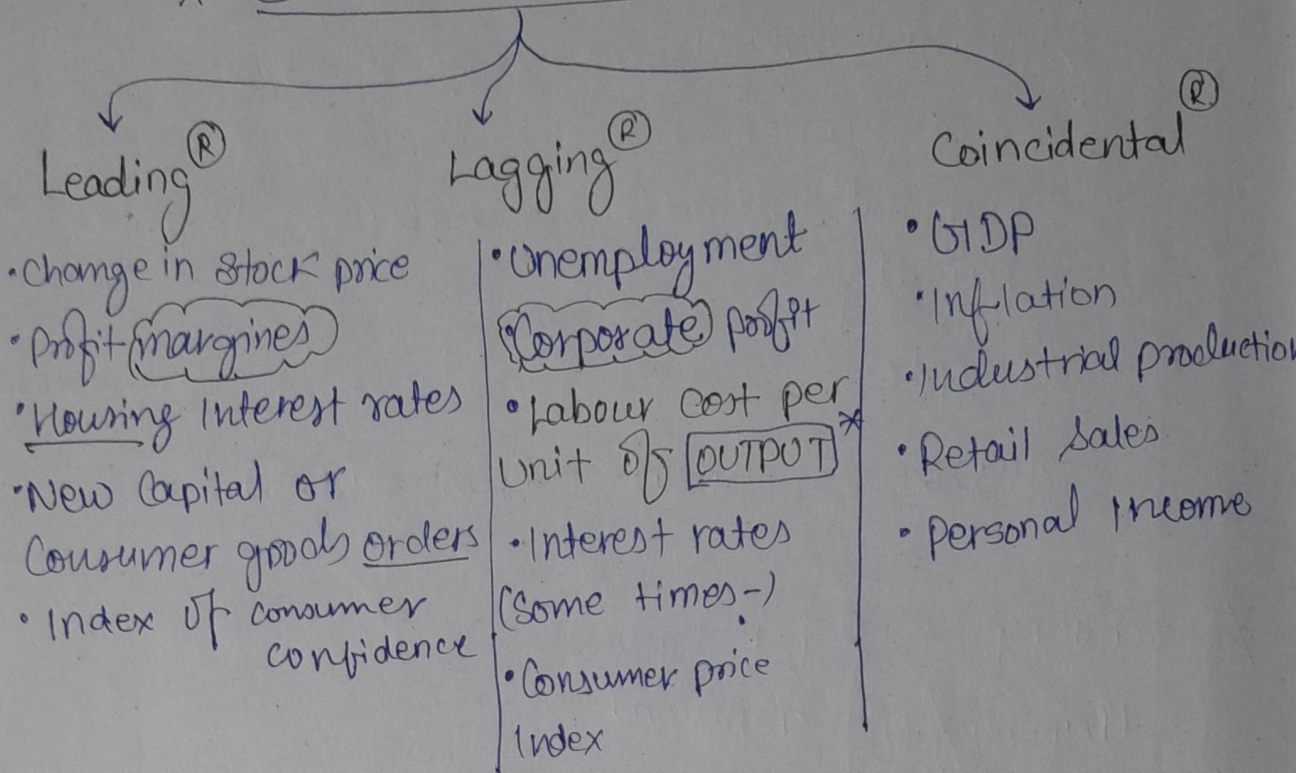 Leading ®
• Change in Stock price
• Profit margines
• Housing Interest rates
• New Capital or
Consumer goods orders
• Index of consumer
confidence
Lagging ®
• Unemployment
• Corporate profit
• Labour cost per
Unit of OUTPUT*
• Interest rates
(Some times-)
• Consumer price
Index
Coincidental ®
• GDP
• Inflation
• Industrial production
• Retail Sales
• Personal Income